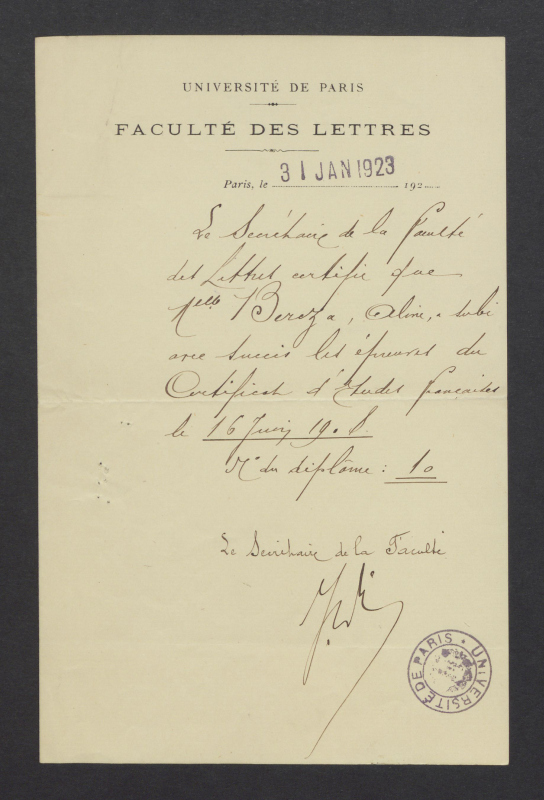 UNIVERSITÉ DE PARIS
FACULTÉ DES LETTRES
Paris, le 31 JAN 1923 192
Le Secrétaire de la Faculté
des Lettres certifie que
Melle Bereza, Aline, a subi
avec succès les épreuves du
Certificat d'Études françaises
le 16 Juin 1908.
No du diplôme : 10
Le Secrétaire de la Faculté
UNIVERSITÉ DE PARIS